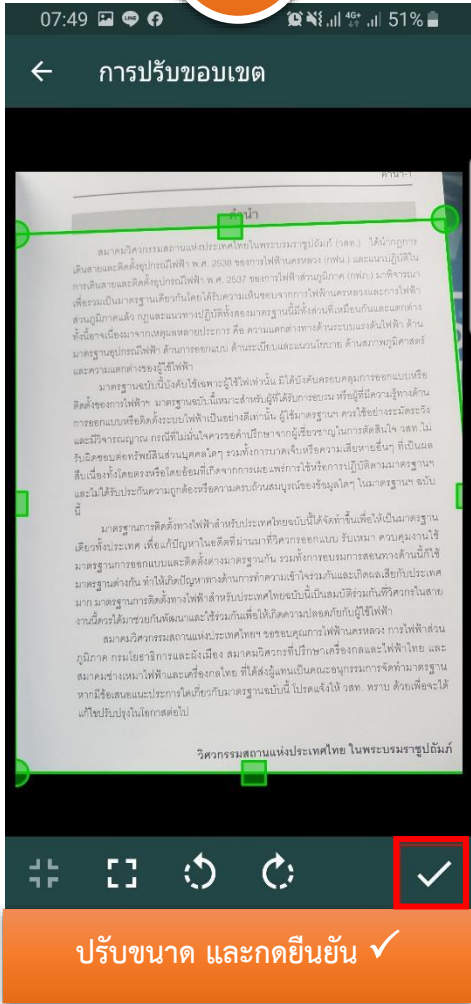 07:49 4G+ 51%
การปรับขอบเขต
คำนำ-1
คำนำ
สมาคมวิศวกรรมสถานแห่งประเทศไทยในพระบรมราชูปถัมภ์ (วสท.) ได้นำกฎการ
เดินสายและติดตั้งอุปกรณ์ไฟฟ้า พ.ศ. 2538 ของการไฟฟ้านครหลวง (กฟน.) และแนวปฏิบัติใน
การเดินสายและติดตั้งอุปกรณ์ไฟฟ้า พ.ศ. 2537 ของการไฟฟ้าส่วนภูมิภาค (กฟภ.) มาพิจารณา
เพื่อรวมเป็นมาตรฐานเดียวกันโดยได้รับความเห็นชอบจากการไฟฟ้านครหลวงและการไฟฟ้า
ส่วนภูมิภาคแล้ว กฎและแนวทางปฏิบัติทั้งสองมาตรฐานนี้มีทั้งส่วนที่เหมือนกันและแตกต่าง
ทั้งนี้อาจเนื่องมาจากเหตุผลหลายประการ คือ ความแตกต่างทางด้านระบบแรงดันไฟฟ้า ด้าน
มาตรฐานอุปกรณ์ไฟฟ้า ด้านการออกแบบ ด้านระเบียบและแนวนโยบาย ด้านสภาพภูมิศาสตร์
และความแตกต่างของผู้ใช้ไฟฟ้า
มาตรฐานฉบับนี้บังคับใช้เฉพาะผู้ใช้ไฟเท่านั้น มิได้บังคับครอบคลุมการออกแบบหรือ
ติดตั้งของการไฟฟ้าฯ มาตรฐานฉบับนี้เหมาะสำหรับผู้ที่ได้รับการอบรม หรือผู้ที่มีความรู้ทางด้าน
การออกแบบหรือติดตั้งระบบไฟฟ้าเป็นอย่างดีเท่านั้น ผู้ใช้มาตรฐานฯ ควรใช้อย่างระมัดระวัง
และมีวิจารณญาณ กรณีที่ไม่มั่นใจควรขอคำปรึกษาจากผู้เชี่ยวชาญในการตัดสินใจ วสท.ไม่
รับผิดชอบต่อทรัพย์สินส่วนบุคคลใดๆ รวมทั้งการบาดเจ็บหรือความเสียหายอื่นๆ ที่เป็นผล
สืบเนื่องทั้งโดยตรงหรือโดยอ้อมที่เกิดจากการเผยแพร่การใช้หรือการปฏิบัติตามมาตรฐานฯ
และไม่ได้รับประกันความถูกต้องหรือความครบถ้วนสมบูรณ์ของข้อมูลใดๆ ในมาตรฐานฯ ฉบับ
นี้
มาตรฐานการติดตั้งทางไฟฟ้าสำหรับประเทศไทยฉบับนี้ได้จัดทำขึ้นเพื่อให้เป็นมาตรฐาน
เดียวทั้งประเทศ เพื่อแก้ปัญหาในอดีตที่ผ่านมาที่วิศวกรออกแบบ รับเหมา ควบคุมงานใช้
มาตรฐานการออกแบบและติดตั้งต่างมาตรฐานกัน รวมทั้งการอบรมการสอนทางด้านนี้ก็ใช้
มาตรฐานต่างกัน ทำให้เกิดปัญหาทางด้านการทำความเข้าใจร่วมกันและเกิดผลเสียกับประเทศ
มาก มาตรฐานการติดตั้งทางไฟฟ้าสำหรับประเทศไทยฉบับนี้เป็นสมบัติร่วมกันที่วิศวกรในสาย
งานนี้ควรได้มาช่วยกันพัฒนาและใช้ร่วมกันเพื่อให้เกิดความปลอดภัยกับผู้ใช้ไฟฟ้า
สมาคมวิศวกรรมสถานแห่งประเทศไทยฯ ขอขอบคุณการไฟฟ้านครหลวง การไฟฟ้าส่วน
ภูมิภาค กรมโยธาธิการและผังเมือง สมาคมวิศวกรที่ปรึกษาเครื่องกลและไฟฟ้าไทย และ
สมาคมช่างเหมาไฟฟ้าและเครื่องกลไทย ที่ได้ส่งผู้แทนเป็นคณะอนุกรรมการจัดทำมาตรฐาน
หากมีข้อเสนอแนะประการใดเกี่ยวกับมาตรฐานฉบับนี้ โปรดแจ้งให้ วสท. ทราบ ด้วยเพื่อจะได้
แก้ไขปรับปรุงในโอกาสต่อไป
วิศวกรรมสถานแห่งประเทศไทย ในพระบรมราชูปถัมภ์
ปรับขนาด และกดยืนยัน ✓